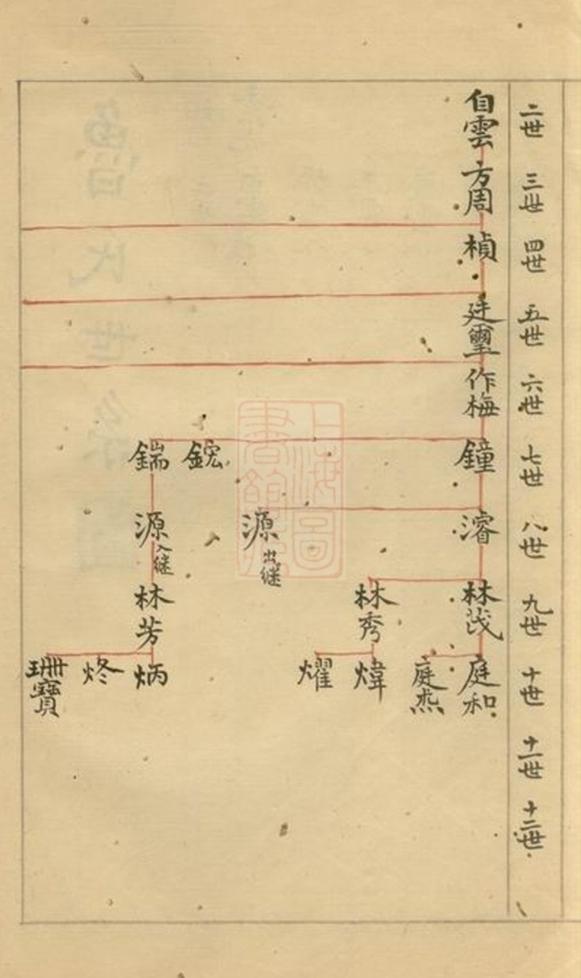 二世
三世
四世
五世
六世
七世
八世
九世
十世
十一世
十二世
自雲
方周
楨
廷璽
作梅
鐘
濬
林茂
庭和
庭杰
林秀
煒
耀
源 出継
鋐
鍴
源 入継
林芳
炳
炵
珊寶
上海圖書館藏
魯氏世系圖